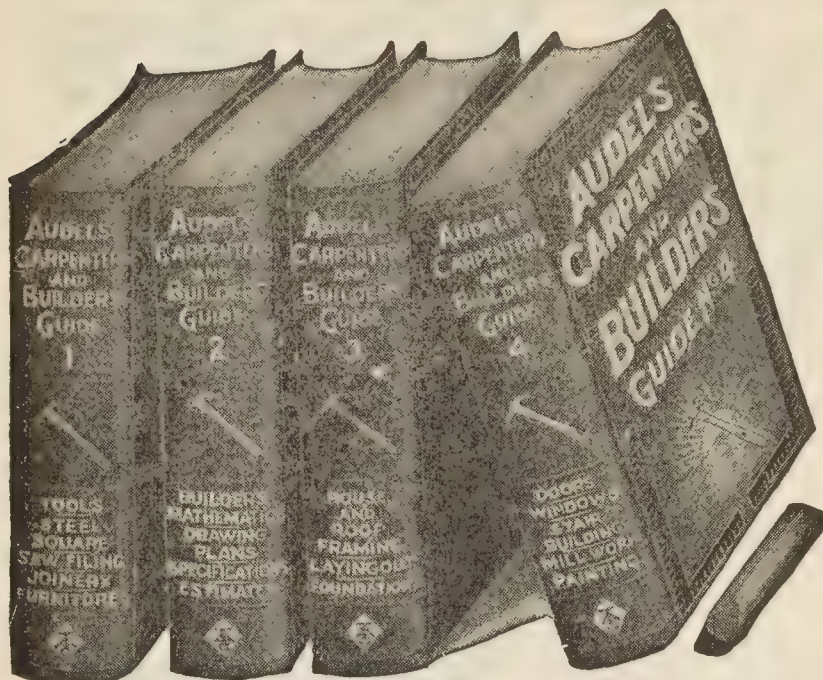 AUDELS
CARPENTERS
AND
BUILDERS
GUIDE
1
TOOLS
STEEL
SQUARE
SAW FILING
JOINERY
FURNITURE
AUDELS
CARPENTERS
AND
BUILDERS
GUIDE
2
BUILDERS
MATHEMATICS
DRAWING
PLANS
SPECIFICATIONS
ESTIMATES
AUDELS
CARPENTERS
AND
BUILDERS
GUIDE
3
HOUSE
AND
ROOF
FRAMING
LAYING OUT
FOUNDATION
AUDELS
CARPENTERS
AND
BUILDERS
GUIDE
4
DOORS
WINDOWS
STAIR
BUILDING
MILLWORK
PAINTING
AUDELS
CARPENTERS
AND
BUILDERS
GUIDE No 4